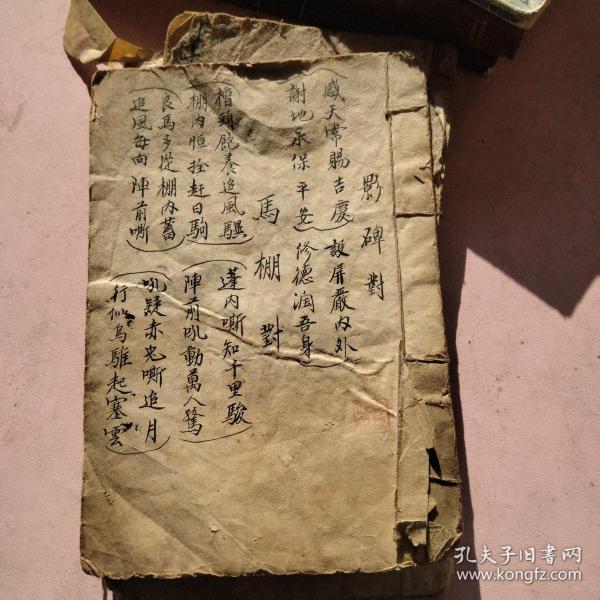 影碑對
感天常賜吉慶
設屏嚴內外
謝地永保平安
修德潤吾身
馬棚對
槽頭飽養追風驥
蓬內嘶知千里駿
棚內恒拴赶日駒
陣前吼動萬人驚
良馬多從棚內蓄
吼疑赤兔嘶追月
追風每向陣前嘶
行似烏騅起塞雲
孔夫子旧书网
www.kongfz.com